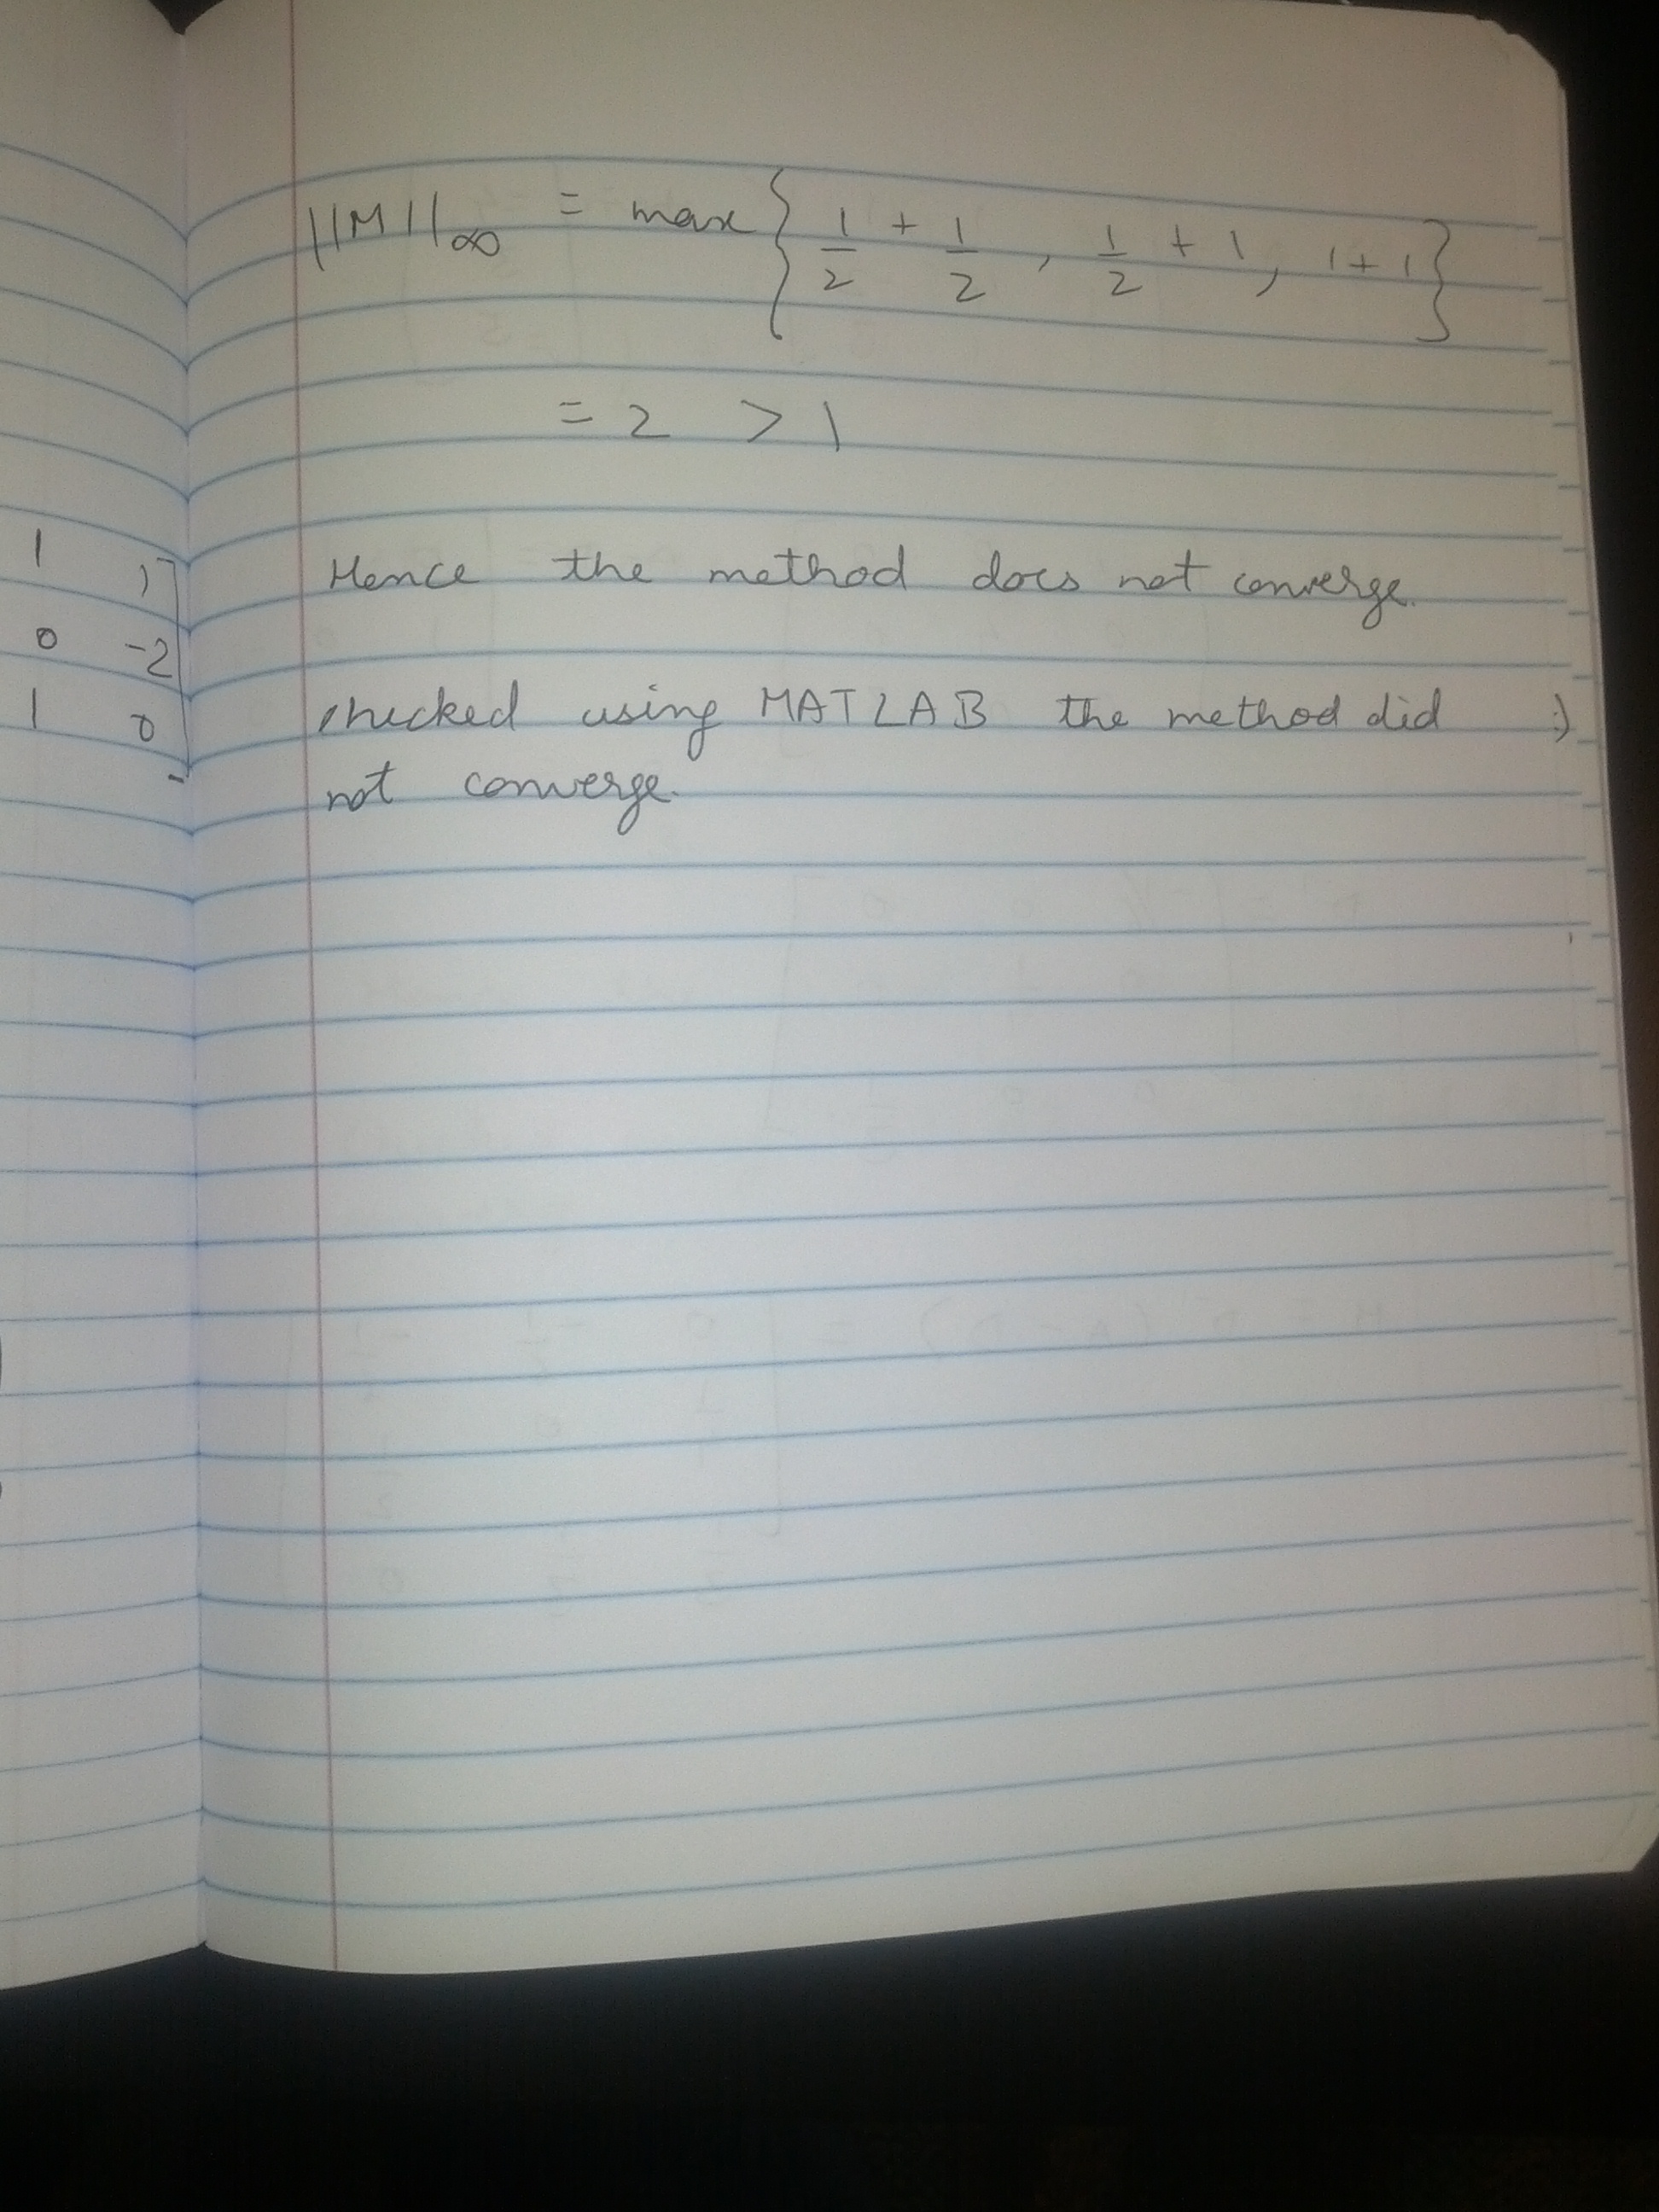 ||M||∞ = max { 1/2 + 1/2 , 1/2 + 1, 1+1 }
= 2 > 1
1 1
0 -2
1 0
Hence the method does not converge.
checked using MATLAB the method did :)
not converge.